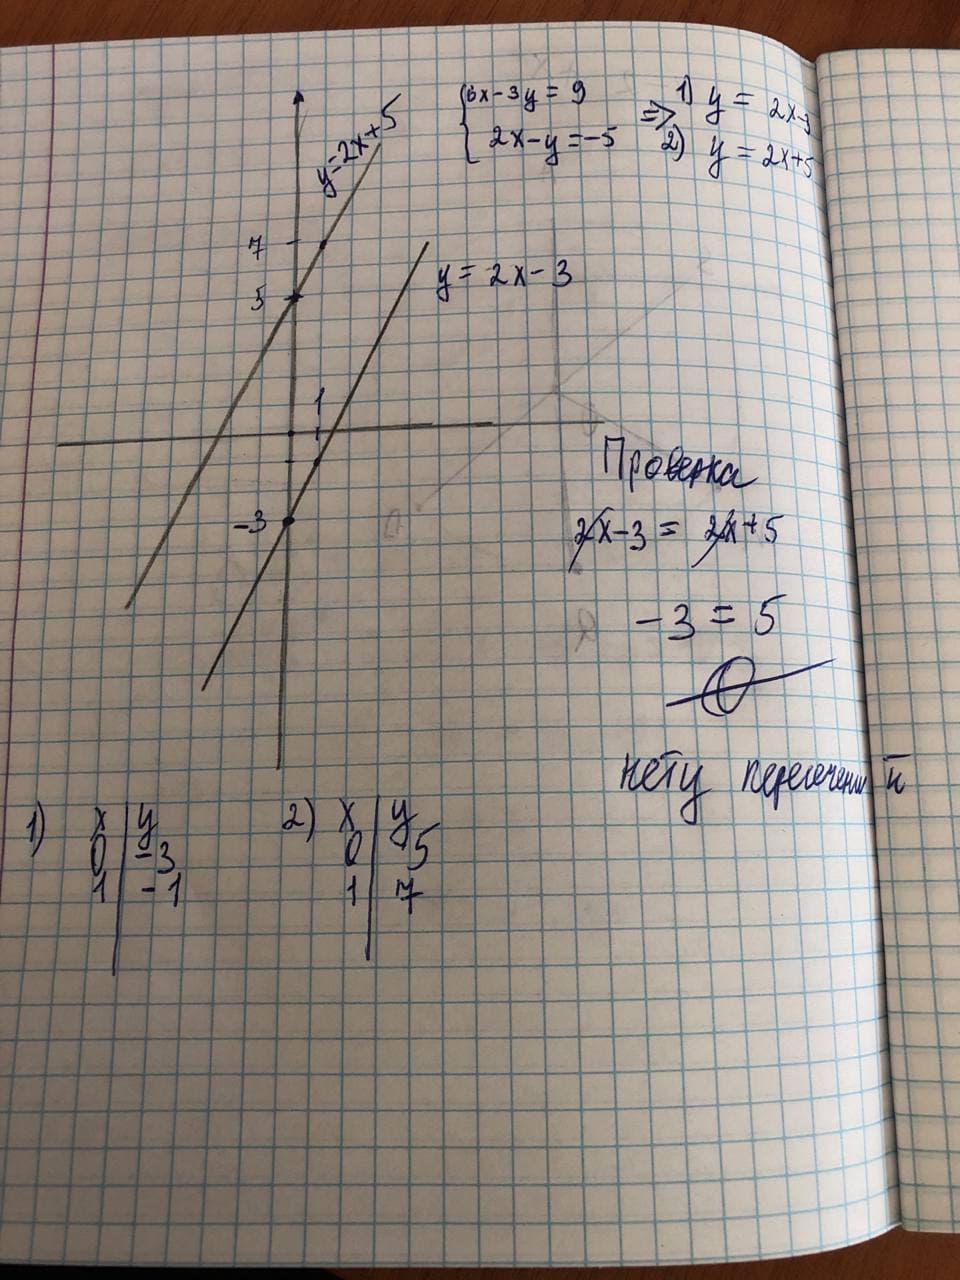 6x-3y = 9
2x-y = -5
=> 1) y = 2x-3
2) y = 2x+5
y=2x+5
7
5
y = 2x - 3
1
1
-3
Проверка
2x-3 = 2x+5
-3 = 5
∅
нету пересечений
1) x y
0 -3
1 -1
2) x y
0 5
1 7